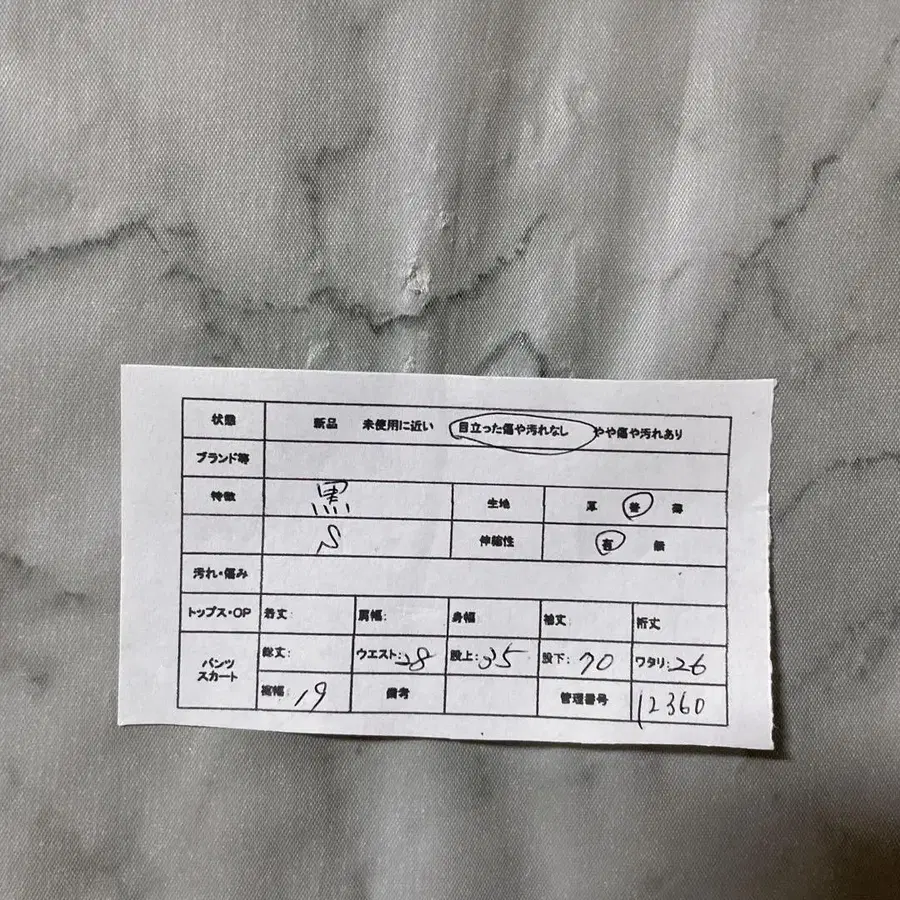 状態 新品 未使用に近い 目立った傷や汚れなし やや傷や汚れあり
ブランド等
特徴 黒 生地 厚 普 薄
S 伸縮性 有 無
汚れ・傷み
トップス・OP 着丈: 肩幅: 身幅: 袖丈: 裄丈
パンツ スカート
総丈: ウエスト:28 股上:35 股下:70 ワタリ:26
裾幅:19 備考 管理番号 12360